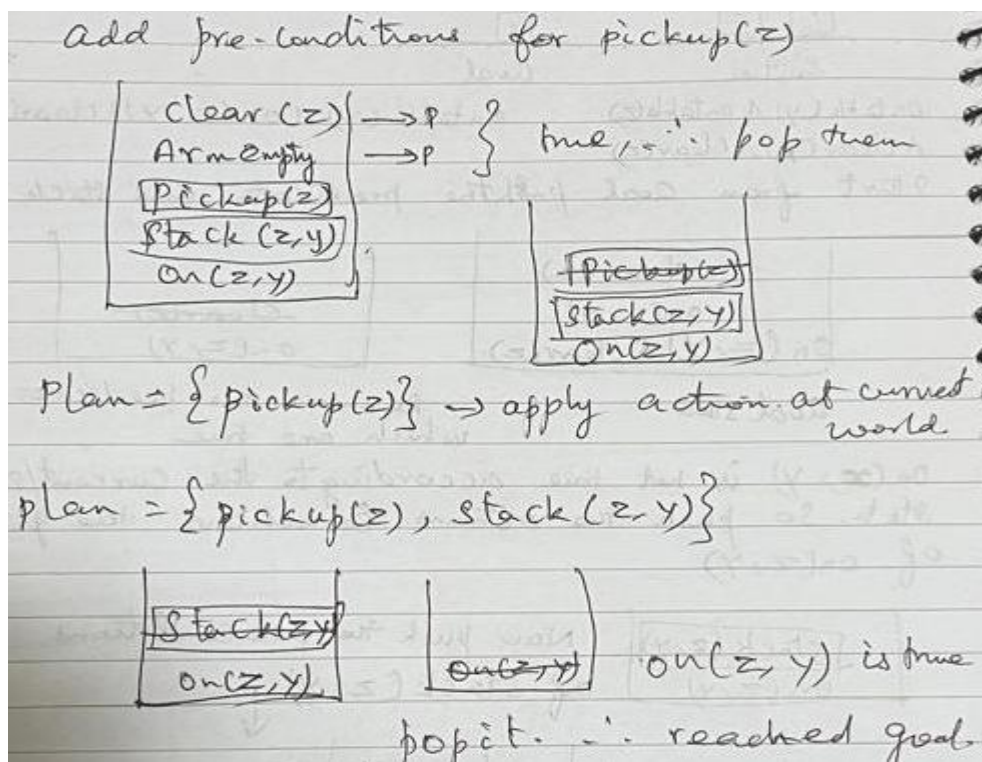 add pre-conditions for pickup(z)
Clear(z) → P
Armempty → P } true, ∴ pop them
Pickup(z)
Stack (z,y)
On(z,y)
Pickup(z)
Stack(z,y)
On(z,y)
Plan = {pickup(z)} → apply action at current
world.
plan = {pickup(z), stack (z,y)}
Stack(z,y)
on(z,y)
on(z,y)
on(z, y) is true
pop it. ∴ reached goal.